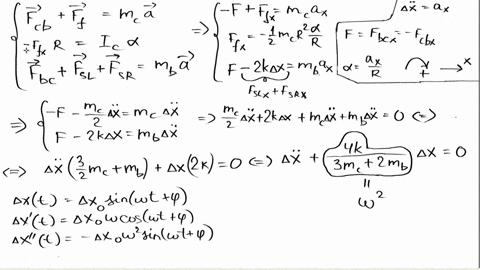 F⃗_cb + F⃗_f = m_c a⃗
F_fx R = I_c α
F⃗_bc + F⃗_SL + F⃗_SR = m_b a⃗
=> -F + F_fx = m_c a_x
F_fx = -1/2 m_c R² α/R
F - 2kΔx = m_b a_x
F_SLx + F_SRx
Δẍ = a_x
F = F_bcx = -F_cbx
α = a_x/R + → x
=> -F - m_c/2 Δẍ = m_c Δẍ
F - 2kΔx = m_b Δẍ
=> m_c/2 Δẍ + 2kΔx + m_c Δẍ + m_b Δẍ = 0 (=)
(=) Δẍ (3/2 m_c + m_b) + Δx(2k) = 0 (=) Δẍ + 4k/(3m_c + 2m_b) Δx = 0
=
ω²
Δx(t) = Δx₀ sin(ωt + φ)
Δx'(t) = Δx₀ ω cos(ωt + φ)
Δx''(t) = -Δx₀ ω² sin(ωt + φ)